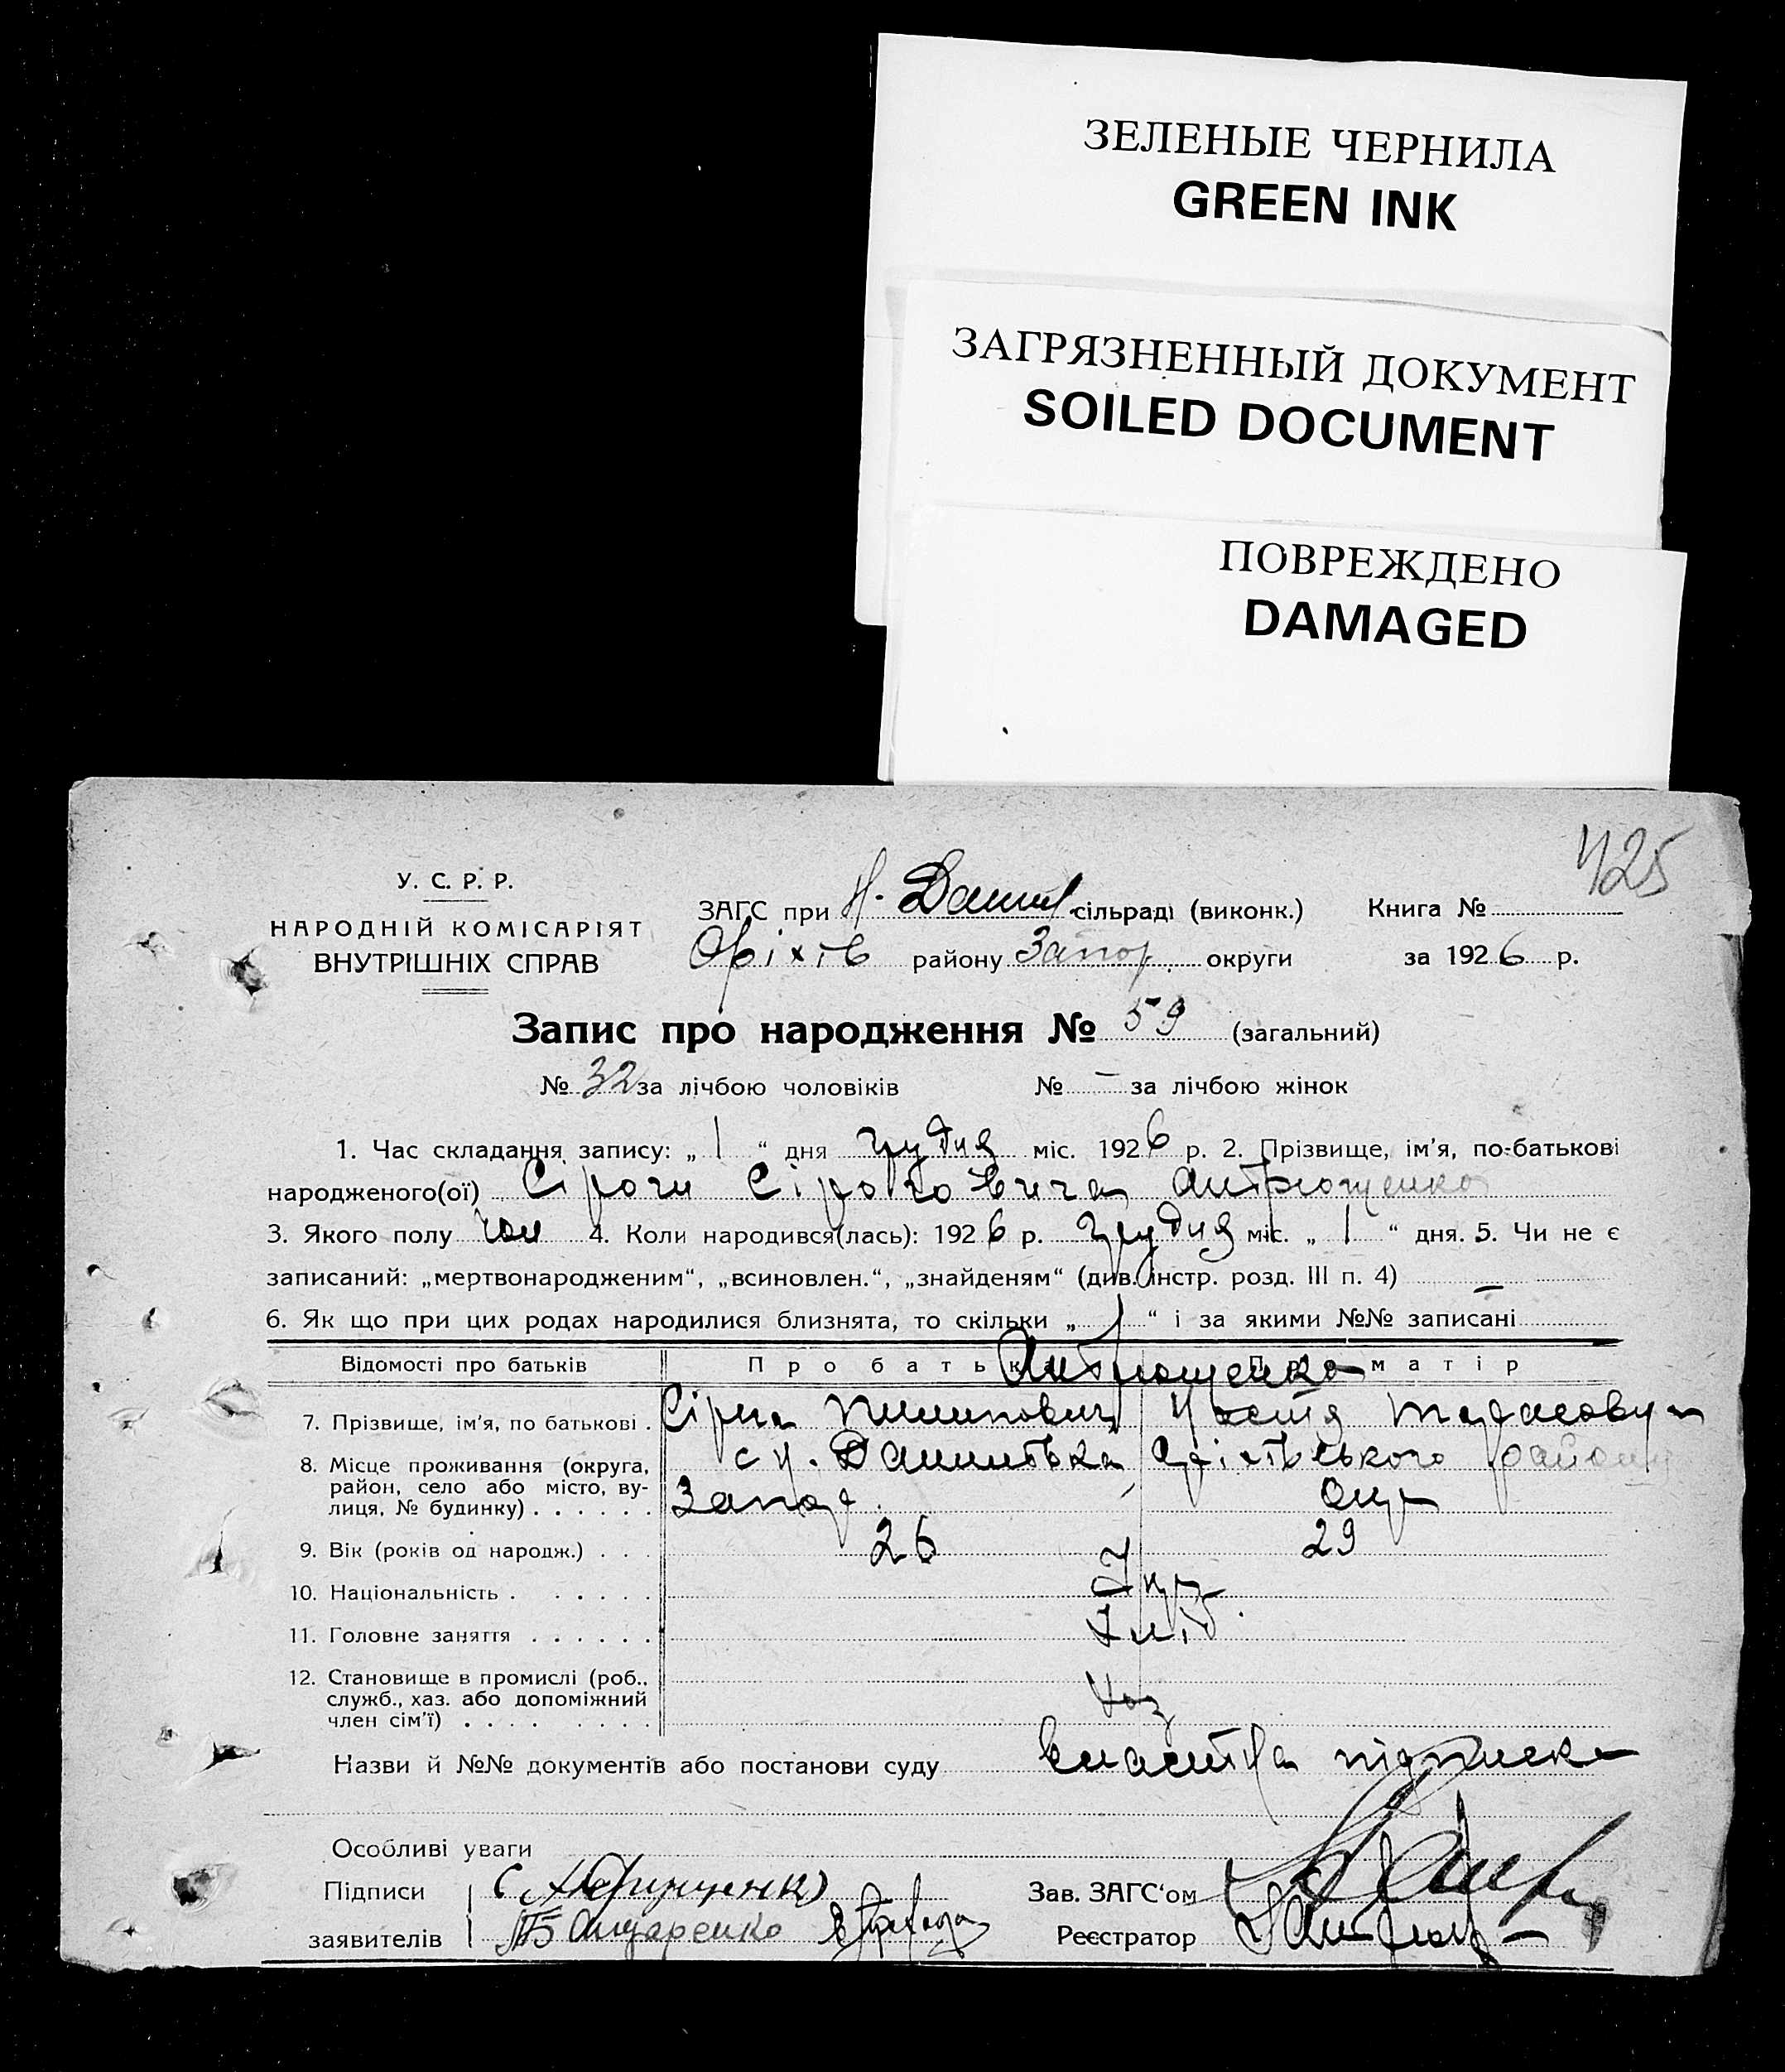 ЗЕЛЕНЫЕ ЧЕРНИЛА
GREEN INK
ЗАГРЯЗНЕННЫЙ ДОКУМЕНТ
SOILED DOCUMENT
ПОВРЕЖДЕНО
DAMAGED
425
У. С. Р. Р.
НАРОДНІЙ КОМІСАРІЯТ
ВНУТРІШНІХ СПРАВ
ЗАГС при Н. Данил сільраді (виконк.) Книга №
Оріхів району Запор. округи за 1926 р.
Запис про народження № 59 (загальний)
№ 32 за лічбою чоловіків № — за лічбою жінок
1. Час складання запису: „ 1 “ дня грудня міс. 1926 р. 2. Прізвище, ім'я, по-батькові
народженого(ої) Антрющенко
3. Якого полу чол 4. Коли народився(лась): 1926 р. грудня міс. „ 1 “ дня. 5. Чи не є
записаний: „мертвонародженим“, „всиновлен.“, „знайденям“ (див. інстр. розд. III п. 4) —
6. Як що при цих родах народилися близнята, то скільки „ “ і за якими №№ записані
Відомості про батьків Про батька Про матір
Антрющенко
7. Прізвище, ім'я, по батькові . Пилипович Тарасовна
8. Місце проживання (округа, район, село або місто, вулиця, № будинку) . . . . . . с Н. Данилівка Оріхівського району
Запор. окр
9. Вік (років од народж.) . . . 26 29
10. Національність . . . . . . Укр
11. Головне заняття . . . . . . Хліб.
12. Становище в промислі (роб., служб., хаз. або допоміжний член сім'ї) . . . . . . . . Хаз
Назви й №№ документів або постанови суду власна підписка
Особливі уваги
Підписи
заявителів Бондаренко
Зав. ЗАГС'ом
Реєстратор